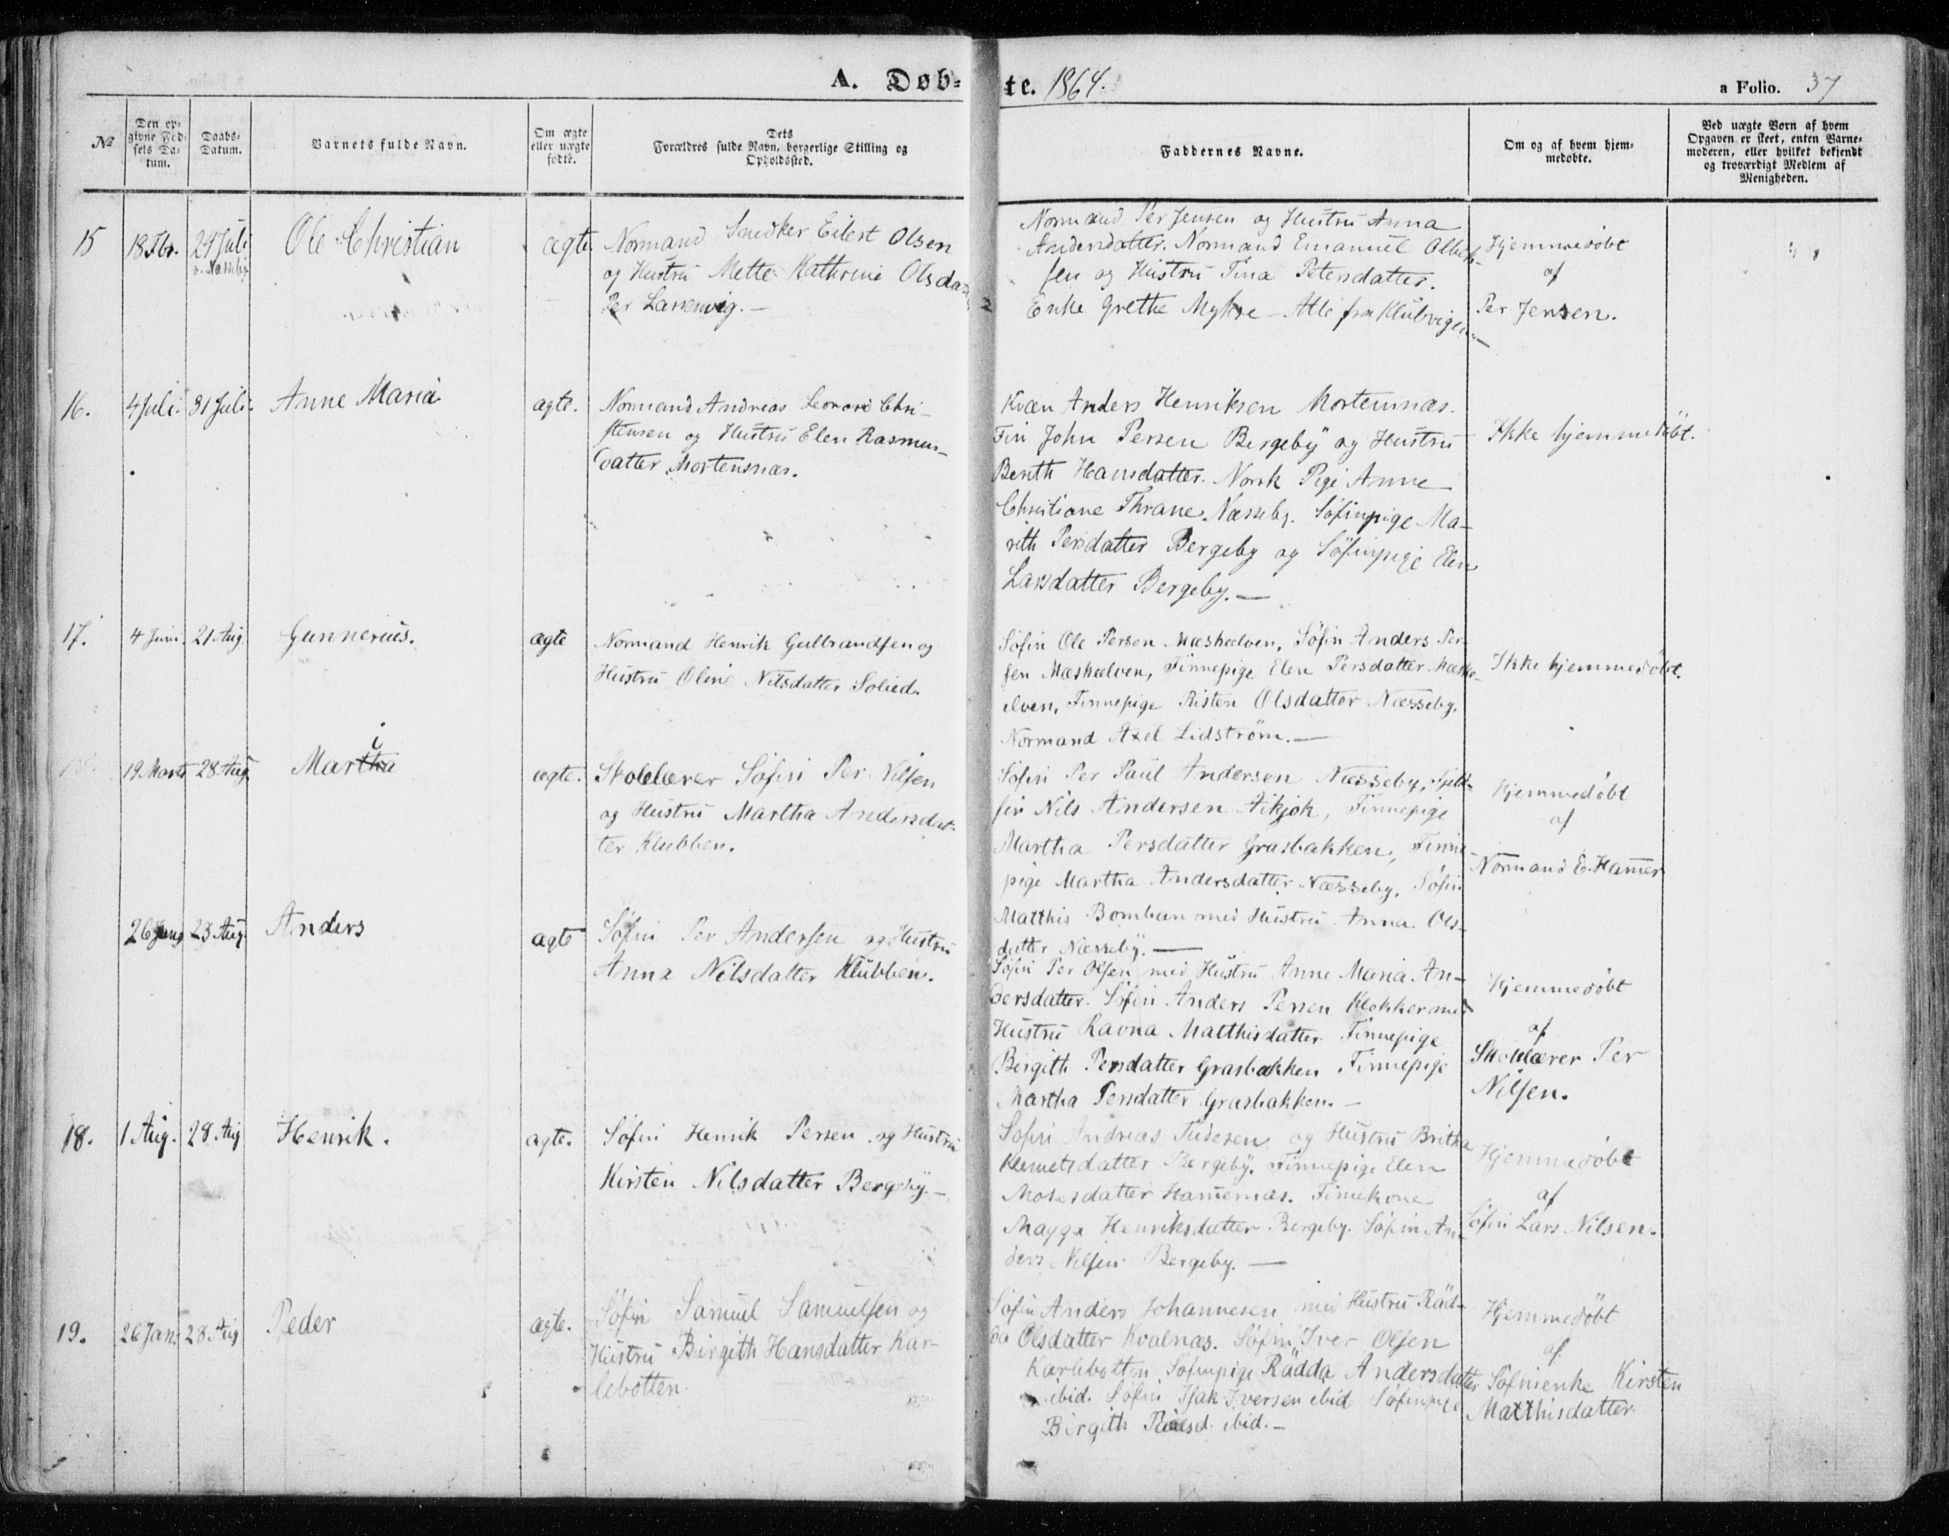 A. Døb=
te. 1864.
a Folio. 37
No
Den op-
givne Fød-
sels Da-
tum.
Daabs-
Datum.
Barnets fulde Navn.
Om ægte
eller uægte
fødte.
Dets
Forældres fulde Navn, borgerlige Stilling og
Opholdssted.
Faddernes Navne.
Om og af hvem hjem-
medøbte.
Ved uægte Børn af hvem
Opgaven er skeet, enten Barne-
moderen, eller hvilket bekjendt
og troværdigt Medlem af
Menigheden.
15
18 Fbr.
24 Juli
Næsseby
Ole Christian
ægte
Normand Snedker Eilert Olsen
og Hustru Mette Kathrine Olsda
Per Larsenvig. —
Normand Per Jensen og Hustru Anna
Normand Emanuel
sen og Hustru Tina Petersdatter.
Enke Grethe Myhre — Alle fra Klubvigen —
Hjemmedøbt
af
Per Jensen.
16.
4 Juli.
31 Juli.
Anne Maria
ægte.
Normand Andreas Leonard Chri-
stensen og Hustru Elen Rasmus-
datter Mortensnæs.
Kvæn Anders Henriksen Mortensnæs.
Fin John Persen Bergeby og Hustru
Berith Hansdatter. Norsk Pige Anne
Christiane Thrane Næsseby. Søfinpige Ma-
rith Persdatter Bergeby og Søfinpige Elen
Larsdatter Bergeby. —
Ikke hjemmedöbt.
17.
4 Juni.
21 Aug.
Gunnerius.
ægte
Normand Henrik Gulbrandsen og
Hustru Oline Nilsdatter Solied.
Søfin Ole Persen Mæskeelven, Søfin Anders Per-
sen Mæskeelven, Finnepige Elen Persdatter Mæske-
elven, Finnepige Risten Olsdatter Næsseby.
Normand Axel Lidström. —
Ikke hjemmedöbt.
19 Marts
28 Aug
i
Martha
ægte.
Skolelærer Søfin Per Nilsen
og Hustru Martha Andersdat-
ter Klubben.
Søfin Per Paul Andersen Næsseby, Fjeld-
fin Nils Andersen Aikjok, Finnepige
Martha Persdatter Grasbakken, Finne-
pige Martha Andersdatter Næsseby, Søfin
Matthis Bomban med Hustru Anna Ols-
datter Næsseby. —
Hjemmedöbt
af
Normand E. Hamer
26
23 Aug.
Anders
ægte
Søfin Per Andersen og Hustru
Anna Nilsdatter Klubben.
Søfin Per Olsen med Hustru Anne Maria An-
dersdatter. Søfin Anders Persen Klokker med
Hustru Ravna Matthisdatter Finnepige
Birgith Persdatter Grasbakken Finnepige
Martha Persdatter Grasbakken. —
Hjemmedöbt
af
Skolelærer Per
Nilsen.
18.
1 Aug.
28 Aug
Henrik.
ægte.
Søfin Henrik Persen og Hustru
Kirsten Nilsdatter Bergeby. —
Søfin Andreas Tudesen og Hustru Britha
Klemetsdatter Bergeby. Finnepige Elen
Mosesdatter Hamernæs. Finnekone
Magga Henriksdatter Bergeby. Søfin An-
ders Nilsen Bergeby. —
Hjemmedöbt
af
Søfin Lars Nilsen.
19.
26 Jan.
28 Aug
Peder
ægte.
Søfin Samuel Samuelsen og
Hustru Birgith Hansdatter Kar-
lebotten.
Søfin Anders Johannesen med Hustru Räd-
da Olsdatter Kvalnæs. Søfin Iver Olsen
Karlebotten, Søfinpige Rädda Andersdatter
ibid. Søfin Isak Iversen ibid Søfinpige
Birgith ibid. —
Hjemmedöbt
af
Søfinenke Kirsten
Matthisdatter